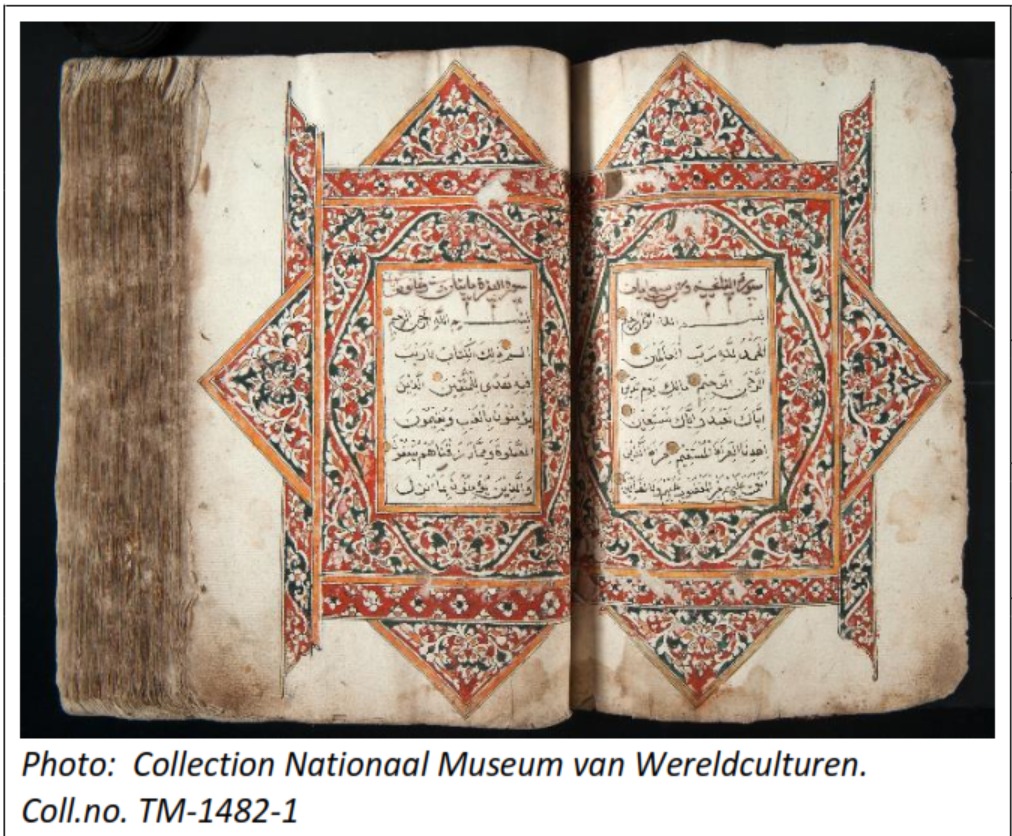 سورة الفاتحة وهي سبع ايات
بسم الله الرحمن الرحيم
الحمد لله رب العالمين
الرحمن الرحيم مالك يوم الدين
اياك نعبد واياك نستعين
اهدنا الصراط المستقيم صراط الذين
انعمت عليهم غير المغضوب عليهم ولا الضالين
سورة البقرة مايتان
بسم الله الرحمن الرحيم
الم ذلك الكتاب لا ريب
فيه هدى للمتقين الذين
يؤمنون بالغيب ويقيمون
الصلوة ومما رزقناهم ينفقون
والذين يؤمنون بما انزل
Photo: Collection Nationaal Museum van Wereldculturen.
Coll.no. TM-1482-1